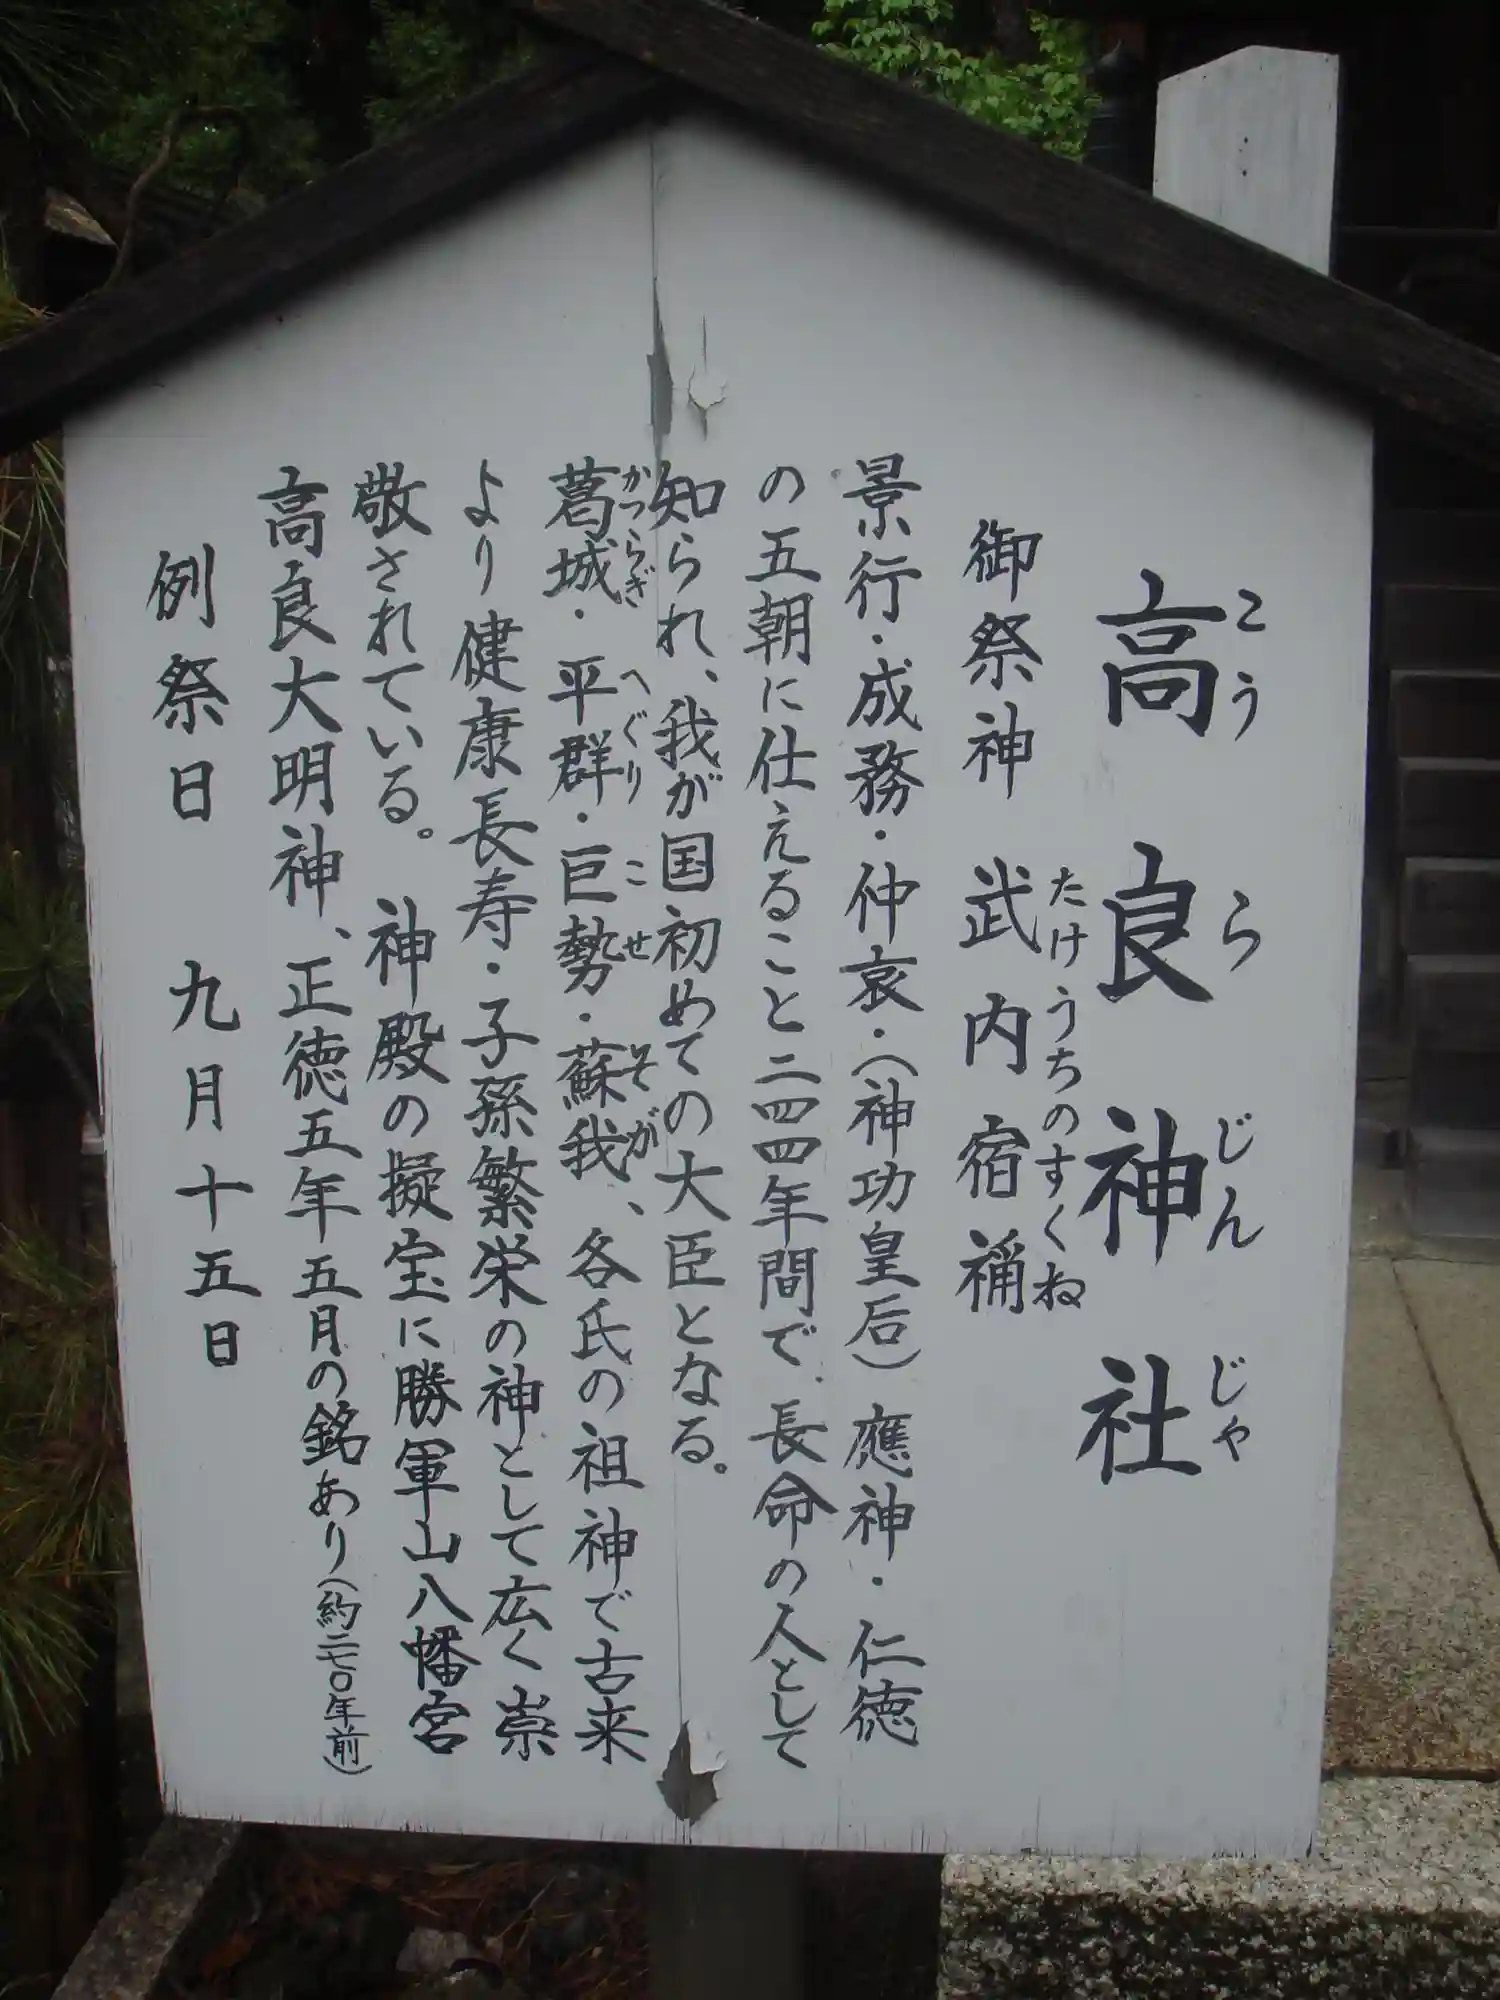 高良神社
こうらじんじゃ
御祭神 武内宿禰
たけうちのすくね
景行・成務・仲哀・(神功皇后)應神・仁徳
の五朝に仕えること二四四年間で、長命の人として
知られ、我が国初めての大臣となる。
葛城・平群・巨勢・蘇我、各氏の祖神で古来
かつらぎ へぐり こせ そが
より健康長寿・子孫繁栄の神として広く崇
敬されている。 神殿の擬宝に勝軍山八幡宮
高良大明神、正徳五年五月の銘あり(約二七〇年前)
例祭日 九月十五日